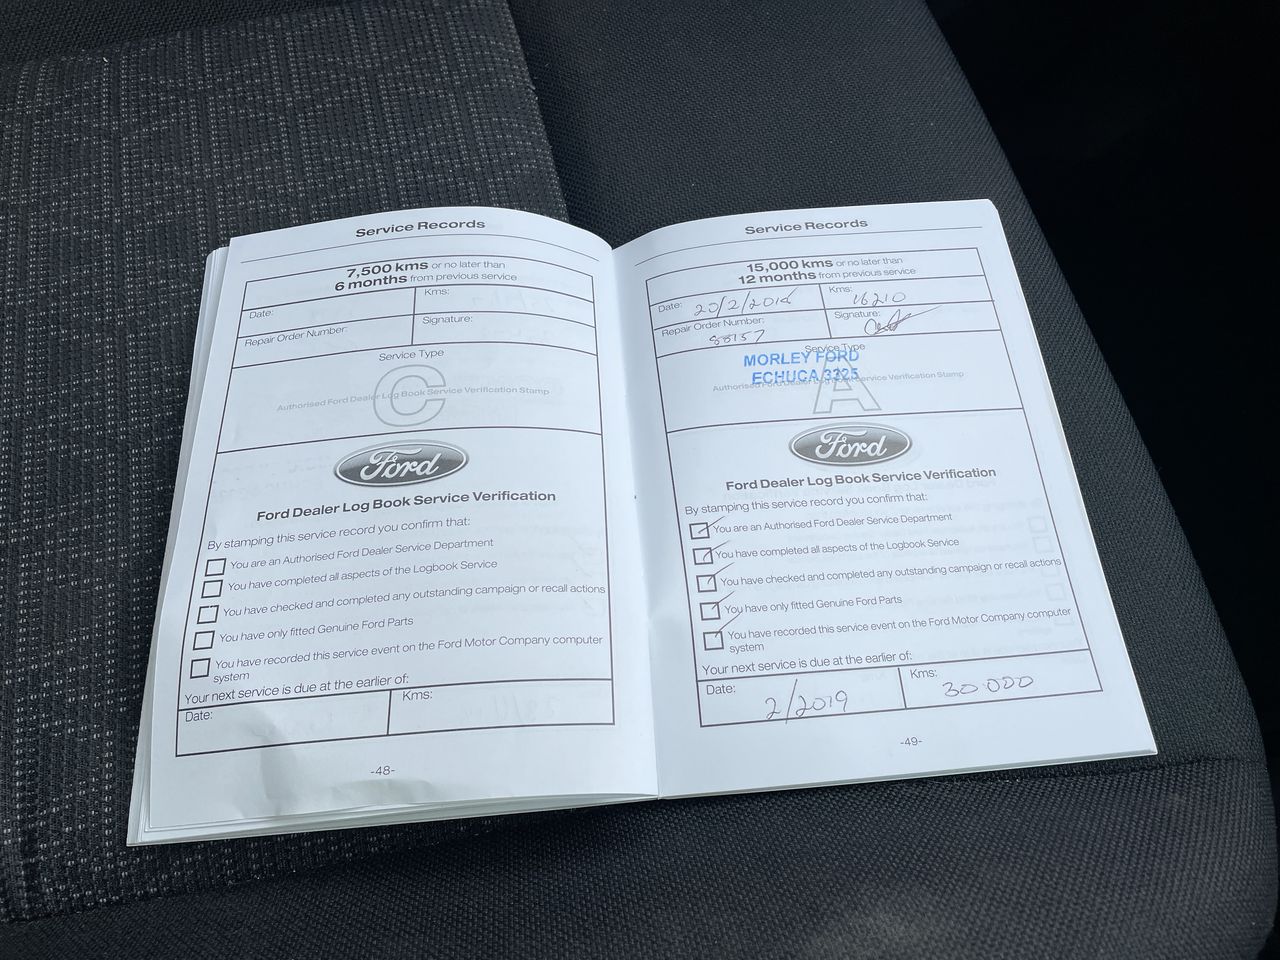 Service Records
7,500 kms or no later than
6 months from previous service
Date:
Kms:
Repair Order Number:
Signature:
Service Type
C
Authorised Ford Dealer Log Book Service Verification Stamp
Ford
Ford Dealer Log Book Service Verification
By stamping this service record you confirm that:
You are an Authorised Ford Dealer Service Department
You have completed all aspects of the Logbook Service
You have checked and completed any outstanding campaign or recall actions
You have only fitted Genuine Ford Parts
You have recorded this service event on the Ford Motor Company computer
system
Your next service is due at the earlier of:
Date:
Kms:
-48-
Service Records
15,000 kms or no later than
12 months from previous service
Date: 20/2/2018
Kms: 16210
Repair Order Number:
Signature:
Service Type
MORLEY FORD
ECHUCA 3325
A
Authorised Ford Dealer Log Book Service Verification Stamp
Ford
Ford Dealer Log Book Service Verification
By stamping this service record you confirm that:
You are an Authorised Ford Dealer Service Department
You have completed all aspects of the Logbook Service
You have checked and completed any outstanding campaign or recall actions
You have only fitted Genuine Ford Parts
You have recorded this service event on the Ford Motor Company computer
system
Your next service is due at the earlier of:
Date: 2/2019
Kms: 30.000
-49-